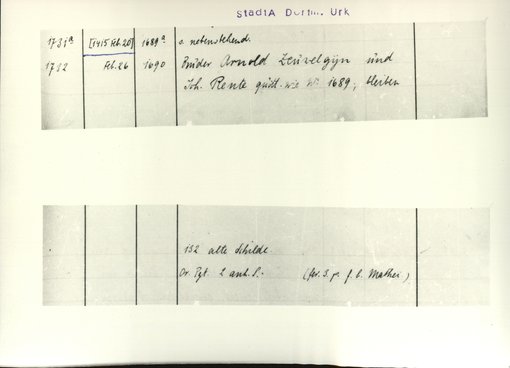 StadtA Dortm. Urk
1731a [1415 Feb. 20] 1689a s. nebenstehend.
1732 Feb. 26 1690 Bruder Arnold Zeuvelgijn und
Joh. Rente quitt. wie Nr 1689, bleiben
132 alte Schilde
Or. Pgt. 2 anh. S. (fer. 3. p. f. b. Mathei)